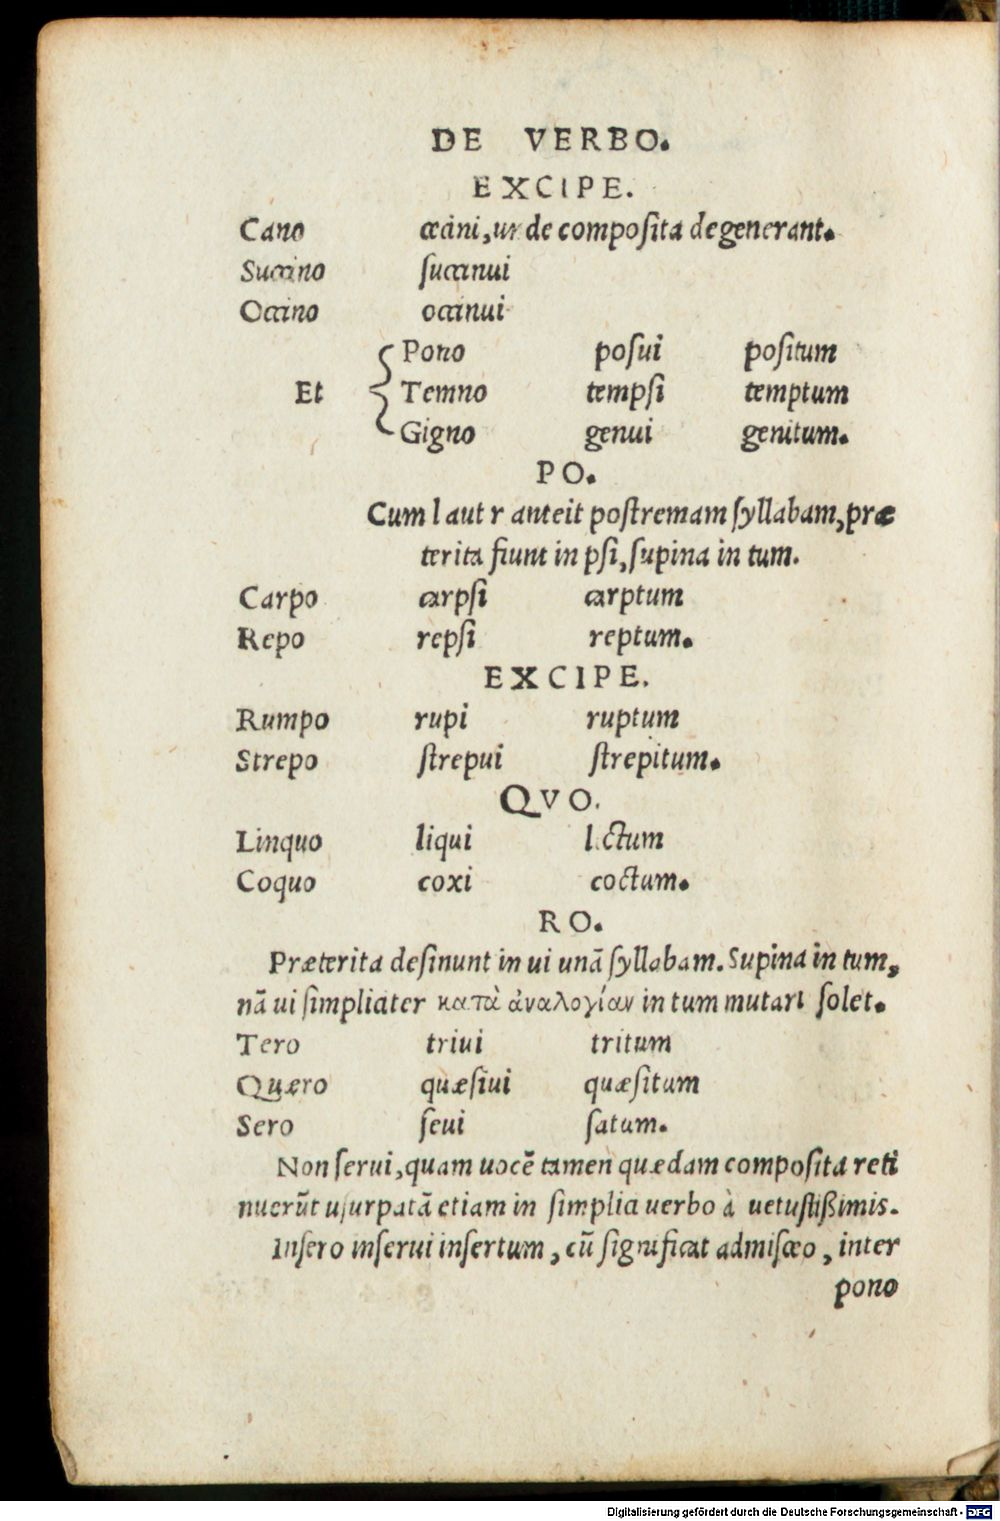 DE VERBO.
EXCIPE.
Cano cecini, unde composita degenerant.
Succino succinui
Occino occinui
Pono posui positum
Et Temno tempsi temptum
Gigno genui genitum.
PO.
Cum l aut r anteit postremam syllabam, præ
terita fiunt in psi, supina in tum.
Carpo carpsi carptum
Repo repsi reptum.
EXCIPE.
Rumpo rupi ruptum
Strepo strepui strepitum.
QVO.
Linquo liqui lictum
Coquo coxi coctum.
RO.
Præterita desinunt in ui unã syllabam. Supina in tum,
nã ui simpliciter κατὰ ἀναλογίαν in tum mutari solet.
Tero triui tritum
Quæro quæsiui quæsitum
Sero seui satum.
Non serui, quam uocẽ tamen quædam composita reti
nuerũt usurpatã etiam in simplici uerbo à uetustißimis.
Insero inserui insertum, cũ significat admisceo, inter
pono
Digitalisierung gefördert durch die Deutsche Forschungsgemeinschaft - DFG